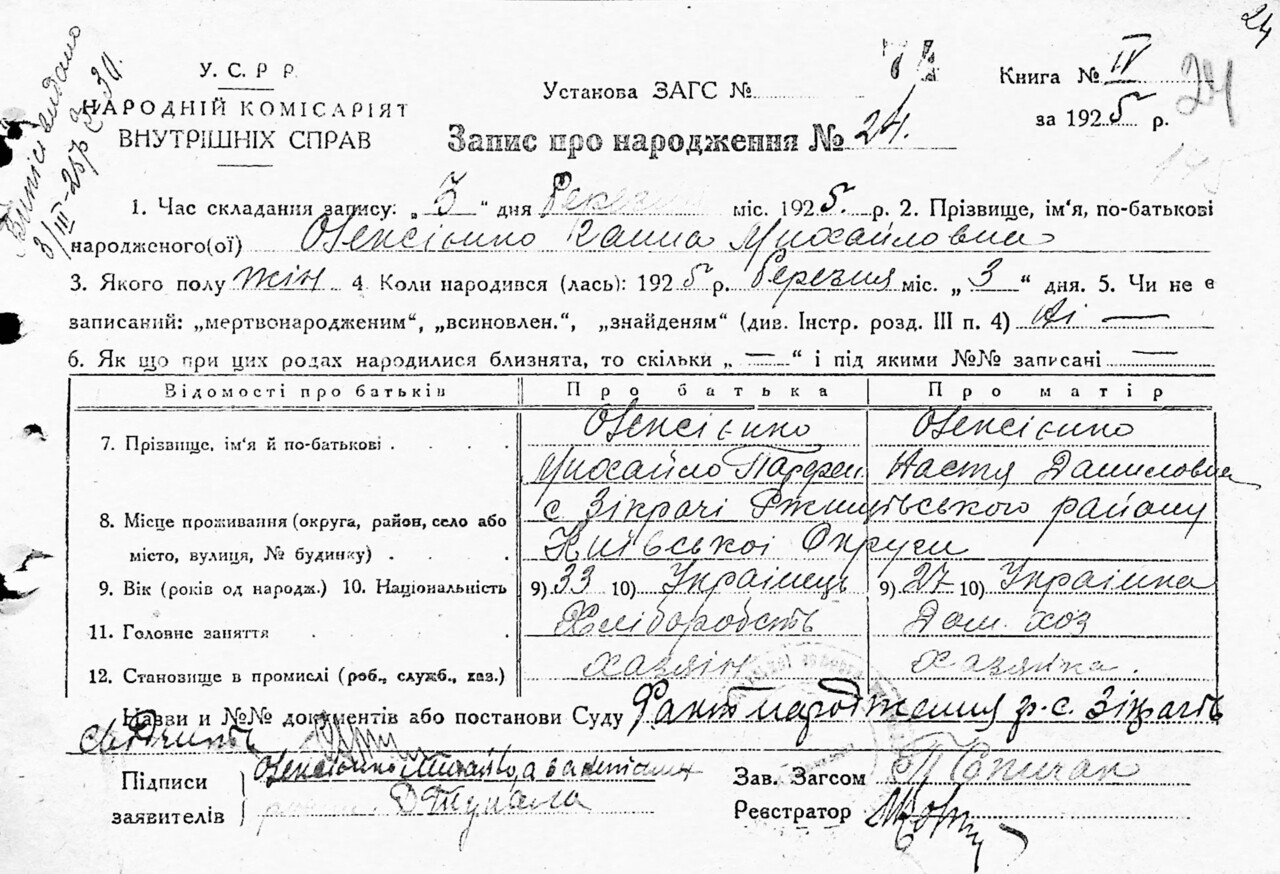 24
Виписі видано
3/III-25р
У. С. Р Р.
НАРОДНІЙ КОМІСАРІЯТ
ВНУТРІШНІХ СПРАВ
Установа ЗАГС №
Книга № IV 24
за 1925 р.
Запис про народження № 24.
1. Час складання запису: „ 3 “ дня міс. 1925. р. 2. Прізвище, ім‘я, по-батькові
народженого(ої) Олексієнко Ганна Михайловна
3. Якого полу жін 4. Коли народився (лась): 1925 р. березня міс. „ 3 “ дня. 5. Чи не є
записаний: „мертвонародженим“, „всиновлен.“, „знайденям“ (див. Інстр. розд. III п. 4) Ні —
6. Як що при цих родах народилися близнята, то скільки „ — “ і під якими №№ записані —
Відомості про батьків Про батька Про матір
7. Прізвище, ім‘я й по-батькові Олексієнко Олексієнко
Михайло Парфен Настя Даниловна
8. Місце проживання (округа, район, село або с Зікрачі Ржищівського району
місто, вулиця, № будинку) Київської Округи
9. Вік (років од народж.) 10. Національність 9) 33 10) Українець 9) 27 10) Українка
11. Головне заняття Хліборобсть Дом. хоз
12. Становище в промислі (роб., служб., хаз.) хазяїн хазяйка.
Назви и №№ документів або постанови Суду Факт народження р. с. Зікрачів
свідчить
Підписи Олексієнко Михайло
заявителів
Зав. Загсом
Реєстратор